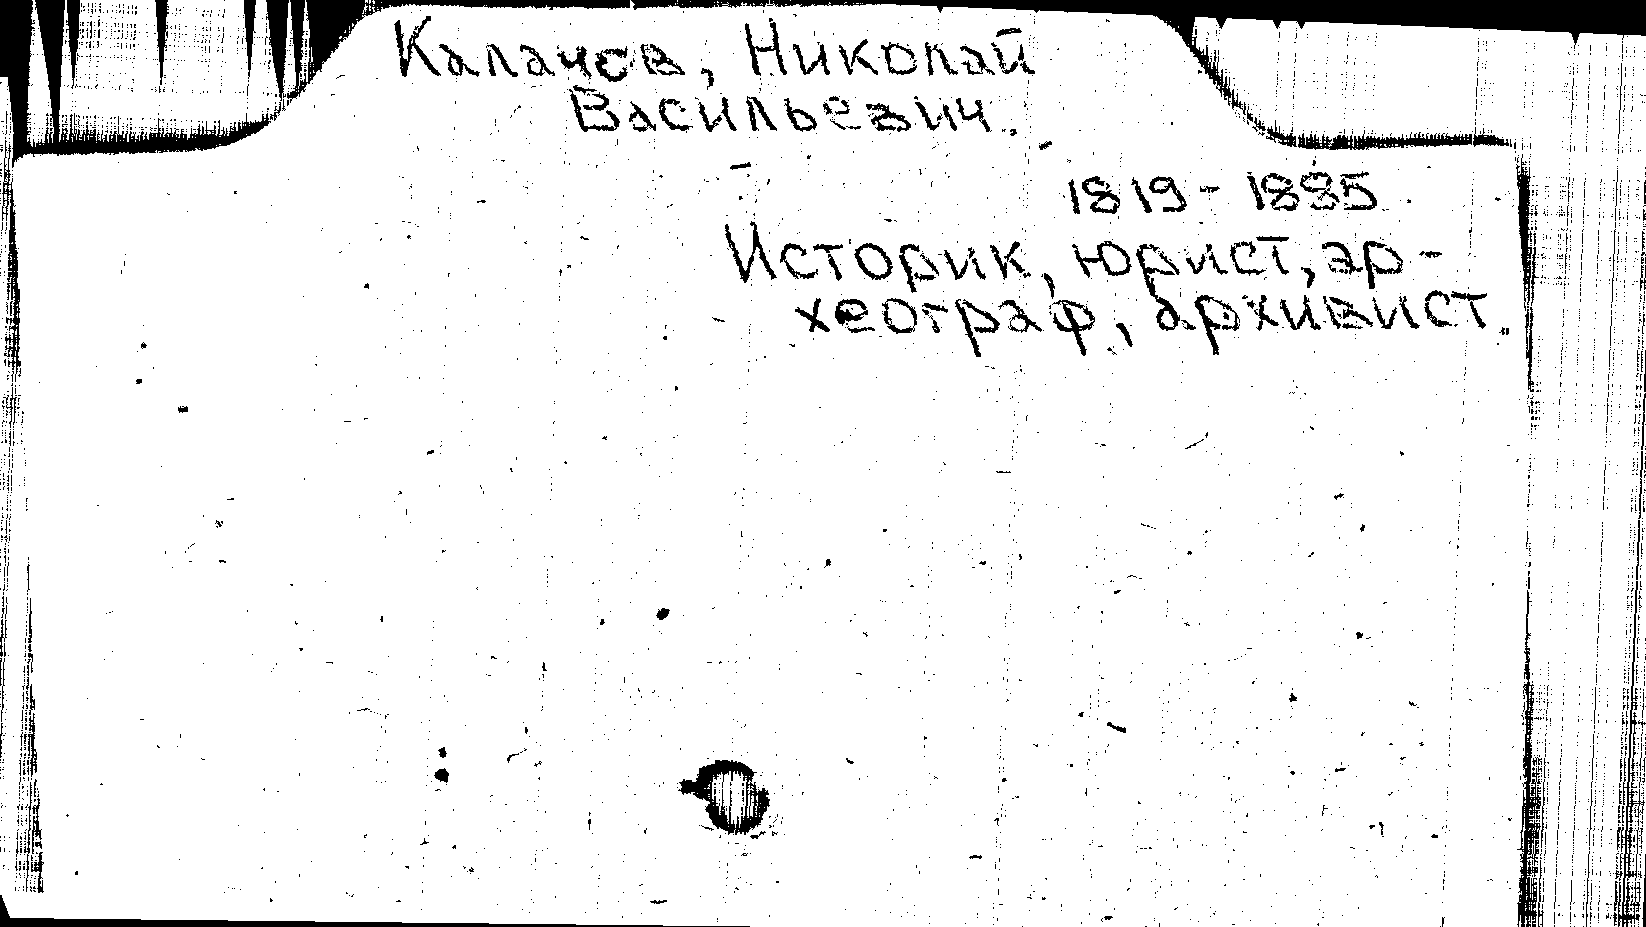 Калачев, Николай
Васильевич.
1819 - 1885
Историк, юрист, ар-
хеограф, архивист.